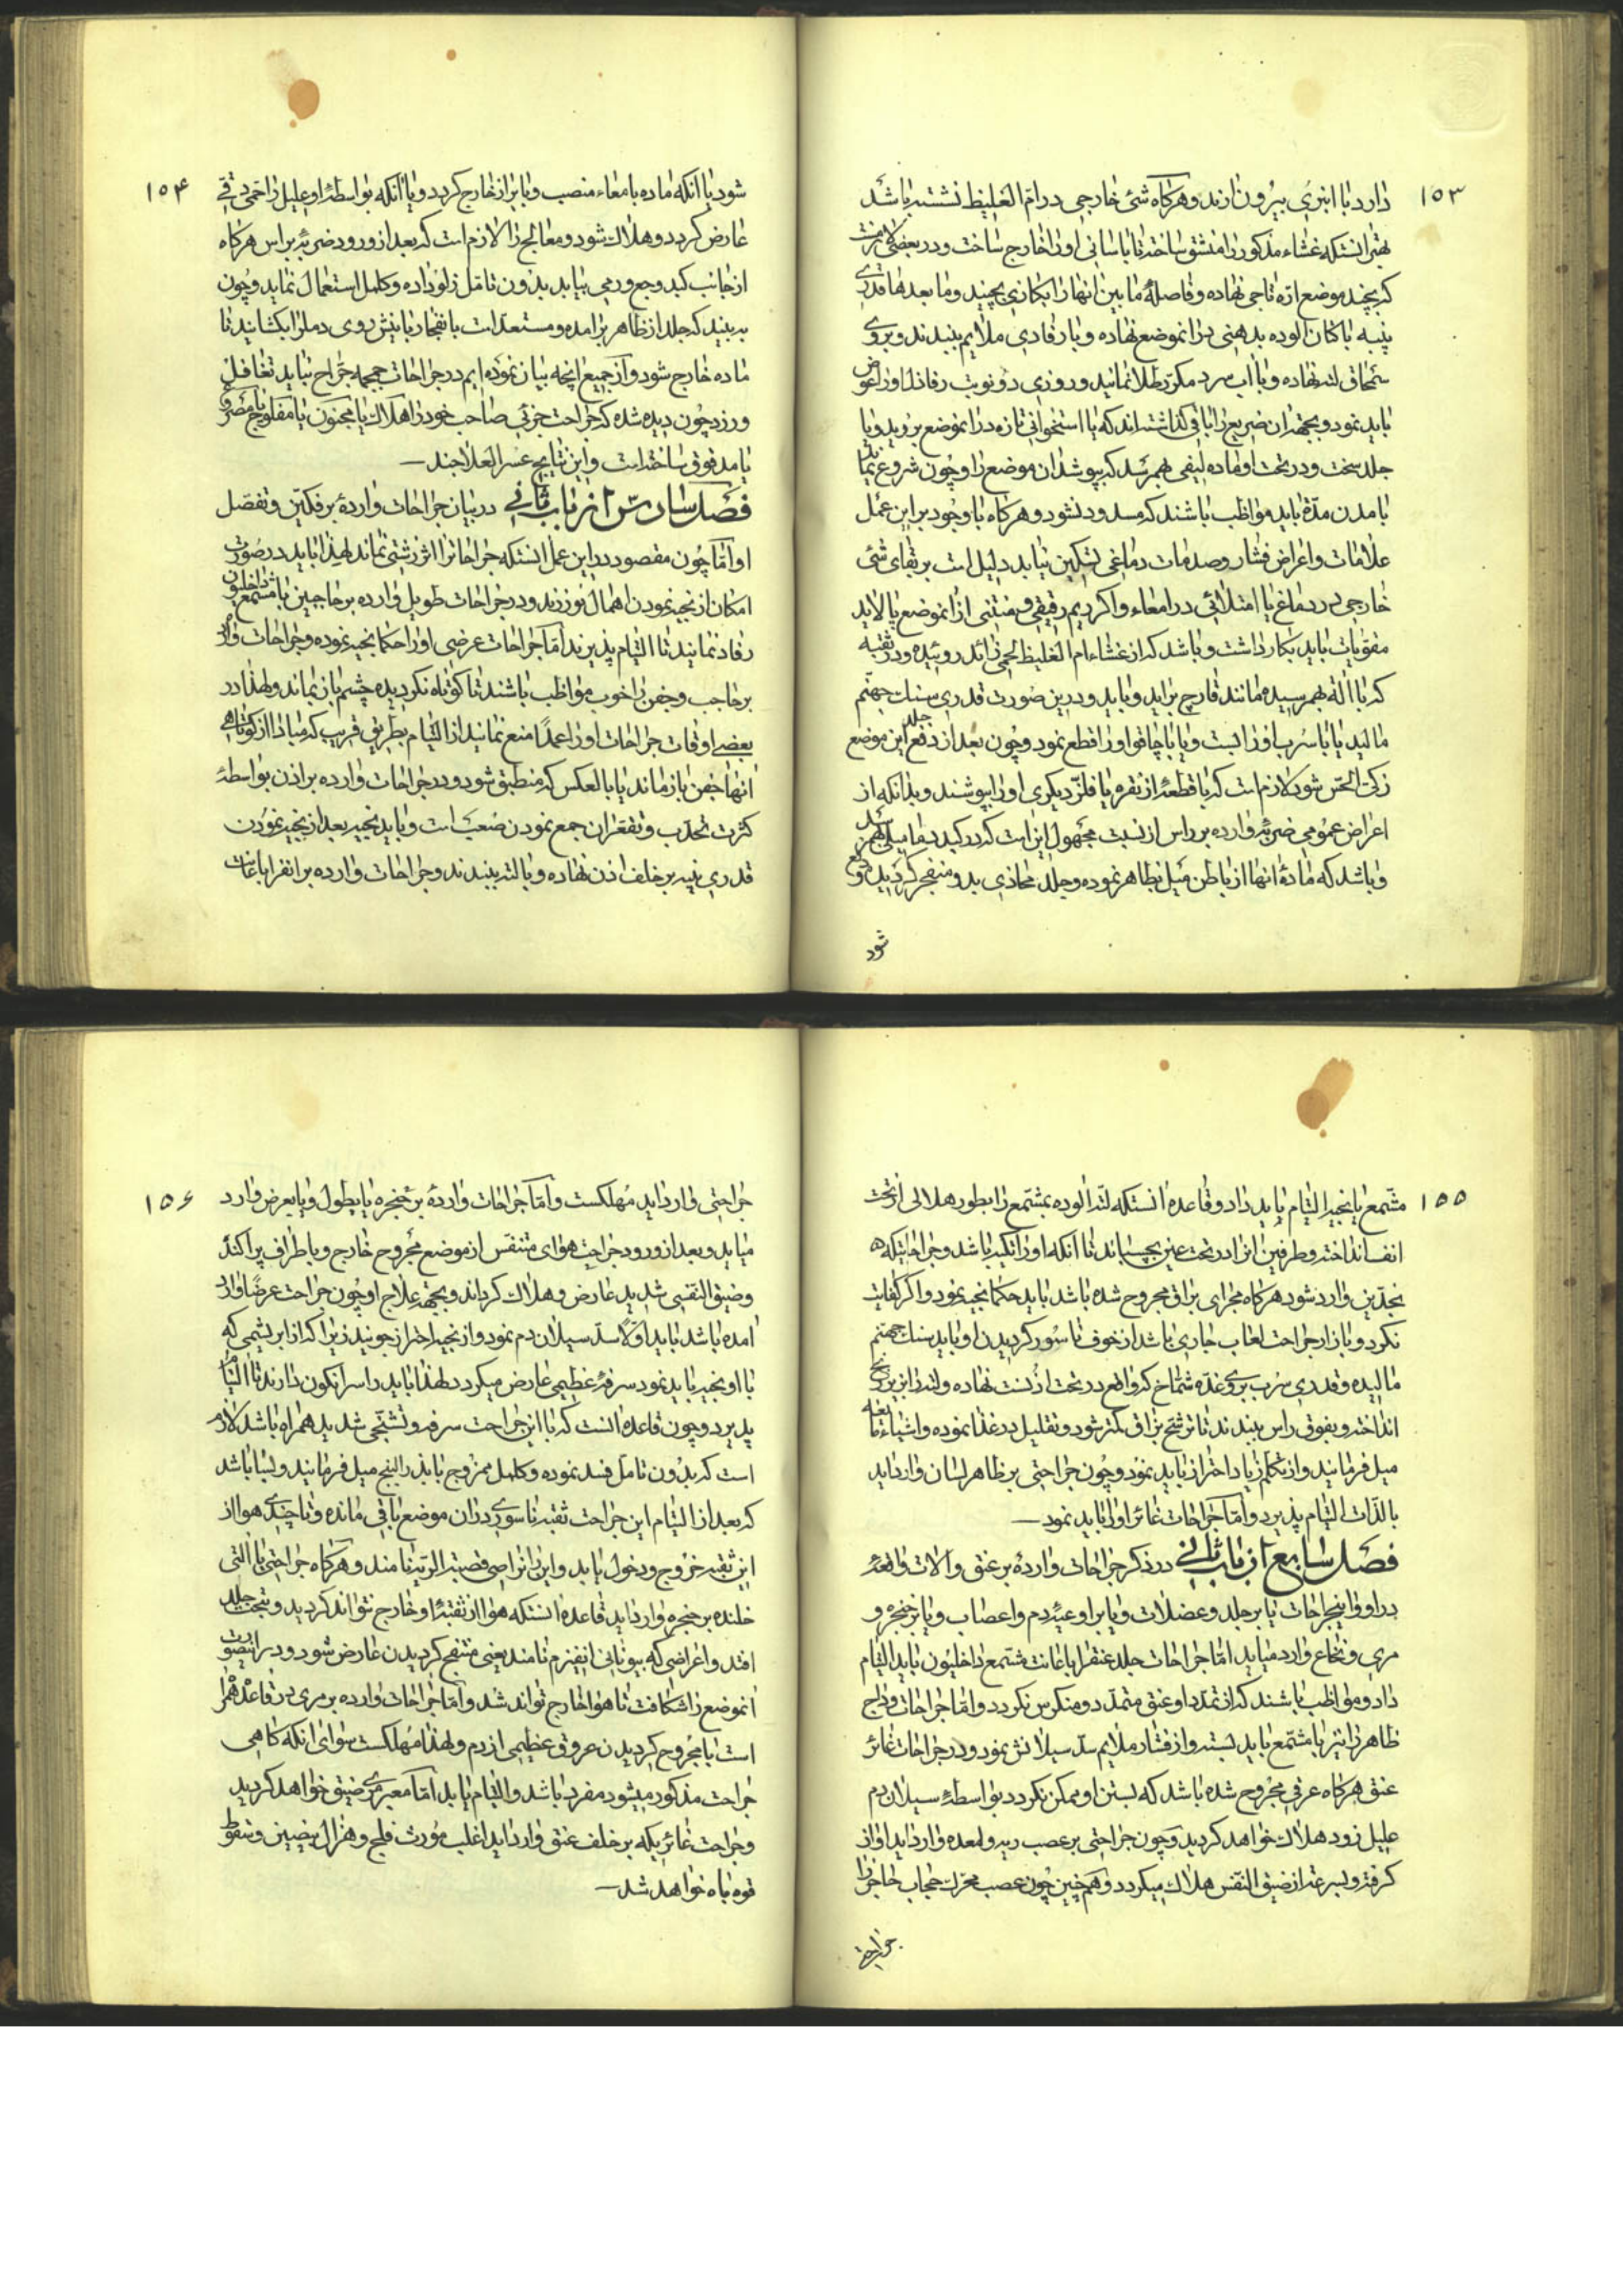 ۱۵۳
دارد یا انبری بیرون ارند و هرکاه شئ خارجی در ام الغلیظ نشسته باشد
بهتر انستکه غشاء مذکور را منشق ساخته تا باسانی او را خارج ساخت و در بعضی
که بچند موضع اره تاجی نهاده و فاصلهٔ مابین انها را بکازنی بچینید و مابعدها قدری
پنبه یا کتان الوده بدهنی در انموضع نهاده و با رفادی ملایم ببندند و بروی
سمحاق لته نهاده و با اب سرد مکرر طلا نمانید و روزی دو نوبت رفاده او را عوض
باید نمود و بجهه ان ضربع را باقی کذاشته اند که یا استخوانی تازه در انموضع بروید و یا
جلد سخت و در تحت او ماده لیفی بهم رسد که بپوشد ان موضع را و چون شروع نماید
بامدن مدّة باید مواظب باشند که مسدود نشود و هرکاه با وجود براین عمل
علامات و اعراض فشار و صدمات دماغی تسکین نیابد دلیل است بر بقای شئ
خارجی در دماغ یا امتلائی در امعاء و اکر دیم رقیقی و منتنی از انموضع پالاید
مقویات باید بکار داشت و باشد که از غشاء ام الغلیظ لحمی زائد روئیده و در ثقبه
که با اله بهم رسیده مانند قارچ براید و باید و درین صورت قدری سنک جهنم
مالید یا با سرب او را بست و یا با چاقو او را قطع نمود و چون بعد از دفع این موضع جلد
زکی الحس شود لازم است که با قطعهٔ از نقره یا فلز دیکری او را بپوشند و بدانکه از
اعراض عمومی ضربهٔ وارده بر راس از نسبت مجهول این است که در کبد دمامیلی بهم رسد
و باشد که مادهٔ انها از باطن میل بظاهر نموده و جلد محاذی بدو منفجر کردیده دفع
شود
۱۵۴
شود یا انکه ماده بامعاء منصب و با براز خارج کردد و یا انکه بواسطهٔ او علیل را حمی دقی
عارض کردد و هلاک شود و معالج را لازم است که بعد از ورود ضربهٔ بر راس هرکاه
از جانب کبد وجع و رمی بیابد بدون تامل زلو داده و کلمل استعمال نماید و چون
به بیند که جلد از ظاهر برامده و مستعد است بانفجار با نیش روی دمل را بکشایند تا
ماده خارج شود و از جمیع انچه بیان نموده ایم در جراحات جمجمه جراح نباید تغافل
ورزد چون دیده شده که جراحت جزئی صاحب خود را هلاک یا مجنون یا مفلوج یا مصروع
یا مدقوق ساخته است و این نتایج عسر العلاجند
فصل سادس از باب ثانی در بیان جراحات واردهٔ بر فکین و تفصل
او اما چون مقصود در این عمل انستکه جراحات را اثر زشتی نماند لهذا باید در صورت
امکان از بخیه نمودن اهمال نورزند و در جراحات طویل وارده بر حاجبین با مشمع داخلیون
رفاد نمانید تا التیام پذیرند اما جراحات عرضی او را حکما بخیه نموده و جراحات وارد
بر حاجب و جفن را خوب مواظب باشند تا کوتاه نکردیده چشم باز نماند و لهذا در
بعضی اوقات جراحات او را عمداً منع نمانید از التیام بطریق قریب که مبادا از کوتاهی
انها جفن باز ماند یا بالعکس که منطبق شود و در جراحات وارده بر اذن بواسطهٔ
کثرت تحدب و تقعر ان جمع نمودن صعب است و باید بخیه بعد از بخیه نمودن
قدری پنبه بر خلف اذن نهاده و با لته ببندند و جراحات وارده بر انف را باعانت
۱۵۵
مشمع یا بخیه التیام باید داد و قاعده انستکه لته الوده بمشمع را بطور هلالی از تحت
انف انداخته و طرفین انرا در تحت عین بچسباند تا انکه او را تکیه باشد و جراحاتیکه
بخدین وارد شود هرکاه مجرای بزاق مجروح شده باشد باید حکما بخیه نمود و اکر کفایت
نکرد و باز از جراحت لعاب جاری باشد از خوف ناسور کردیدن او باید سنک جهنم
مالیده و قدری سرب بروی غده شماخ که واقع در تحت اذنست نهاده و لته را بر زنخ
انداخته و بفوق راس ببندند تا ترشح بزاق کمتر شود و تقلیل در غذا نموده و اشیاء مایعه
میل فرمایند و از تکلم زیاد احتراز باید نمود و چون جراحتی بر ظاهر لسان وارد اید
بالذات التیام پذیرد و اما جراحات غائر او را باید نمود
فصل سابع از باب ثانی در ذکر جراحات واردهٔ بر عنق و الات واقعهٔ
در او و اینجراحات یا بر جلد و عضلات و یا بر اوعیهٔ دم و اعصاب و یا بر حنجره و
مری و نخاع وارد میاید اما جراحات جلد عنق را باعانت مشمع داخلیون باید التیام
داد و مواظب باشند که از تمدد او عنق متمدد و منکرس نکردد و اما جراحات وداج
ظاهر را نیز با مشمع باید بسته و از فشار ملایم سد سیلانش نمود و در جراحات غائر
عنق هرکاه عرقی مجروح شده باشد که بستن او ممکن نکردد بواسطهٔ سیلان دم
علیل زود هلاک خواهد کردید و چون جراحتی بر عصب ریه و معده وارد اید اواز
کرفته و بسرعت از ضیق النفس هلاک میکردد و همچنین چون عصب محرک حجاب حاجز را
جراحتی
۱۵۶
جراحتی وارد اید مهلکست و اما جراحات واردهٔ بر حنجره یا بطول و یا بعرض وارد
میاید و بعد از ورود جراحت هوای متنفس از موضع مجروح خارج و باطراف پراکنده
و ضیق النفسی شدید عارض و هلاک کرداند و بجهه علاج او چون جراحت عرضاً وارد
امده باشد باید اولا سد سیلان دم نمود و از بخیه احتراز جویند زیرا که از ابریشمی که
با او بخیه باید نمود سرفهٔ عظیمی عارض میکردد لهذا باید راس را نکون دارند تا التیام
پذیرد و چون قاعده انست که با این جراحت سرفه و تشنجی شدید همراه باشد لازم
است که بدون تامل فصد نموده و کلمل ممزوج با بذر البنج میل فرمایند و بسا باشد
که بعد از التیام این جراحت ثقبه ناسوری در ان موضع باقی مانده و تا چندی هوا از
این ثقبه خروج و دخول یابد و این را نواصی قصبة الریه نامند و هرکاه جراحتی با التی
خلنده بر حنجره وارد اید قاعده انستکه هوا از ثقبهٔ او خارج نتواند کردید و بتحت جلد
افتد و اعراضی که بیونانی انفیزم نامند یعنی منتفخ کردیدن عارض شود و در اینصورت
انموضع را شکافت تا هوا خارج تواند شد و اما جراحات وارده بر مری در قاعده همراه
است با مجروح کردیدن عروق عظیمی از دم و لهذا مهلکست سوای انکه کاهی
جراحت مذکور میشود مفرد باشد و التیام یابد اما معبر مری ضیق خواهد کردید
و جراحت غائریکه بر خلف عنق وارد اید اغلب مورث فلج و هزال بیضین و سقوط
قوه باه خواهد شد